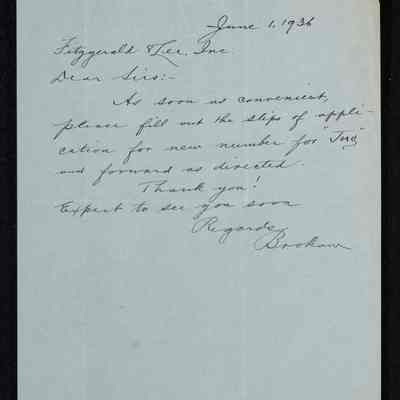 June 1, 1936
Fitzgerald & Lee, Inc.
Dear Sirs:-
As soon as convenient,
please fill out the slips of appli-
cation for new number for "Tug"
and forward as directed.
Thank you!
Expect to see you soon
Regards,
Brokaw